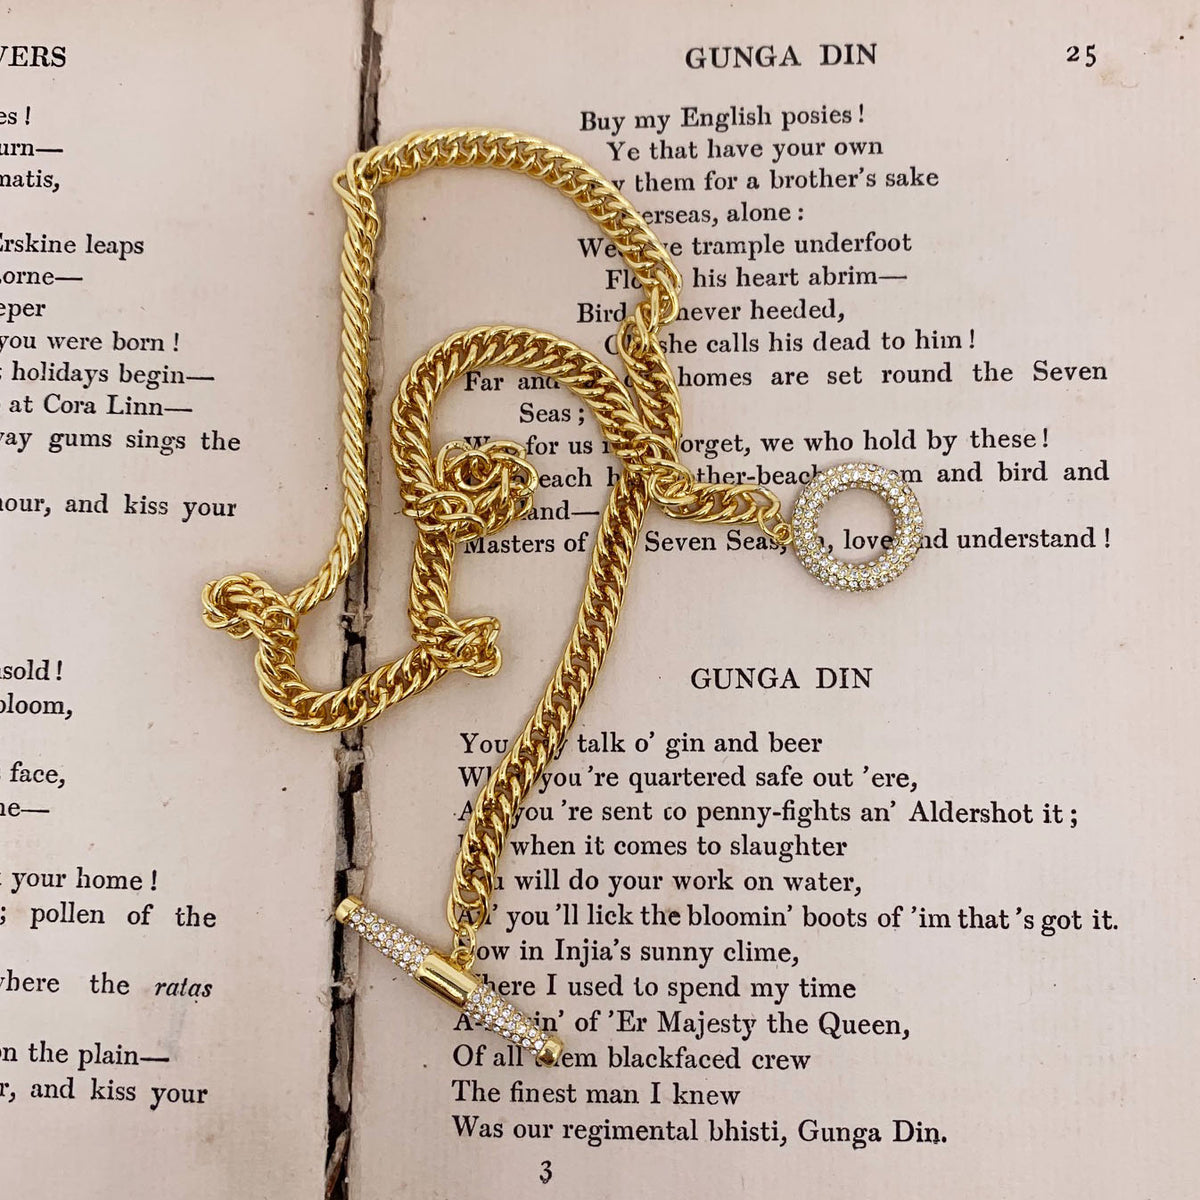 VERS
es !
urn—
natis,
Erskine leaps
orne—
eper
you were born !
; holidays begin—
at Cora Linn—
way gums sings the
our, and kiss your
sold !
bloom,
face,
ne—
your home !
; pollen of the
where the ratas
on the plain—
r, and kiss your
GUNGA DIN 25
Buy my English posies !
Ye that have your own
y them for a brother's sake
erseas, alone :
We ve trample underfoot
Flo his heart abrim—
Bird never heeded,
she calls his dead to him !
Far and homes are set round the Seven
Seas ;
for us orget, we who hold by these !
each ther-beach m and bird and
land—
Masters of Seven Seas, love nd understand !
GUNGA DIN
You talk o' gin and beer
you 're quartered safe out 'ere,
you 're sent to penny-fights an' Aldershot it ;
when it comes to slaughter
will do your work on water,
An' you 'll lick the bloomin' boots of 'im that 's got it.
ow in Injia's sunny clime,
here I used to spend my time
A- in' of 'Er Majesty the Queen,
Of all em blackfaced crew
The finest man I knew
Was our regimental bhisti, Gunga Din.
3